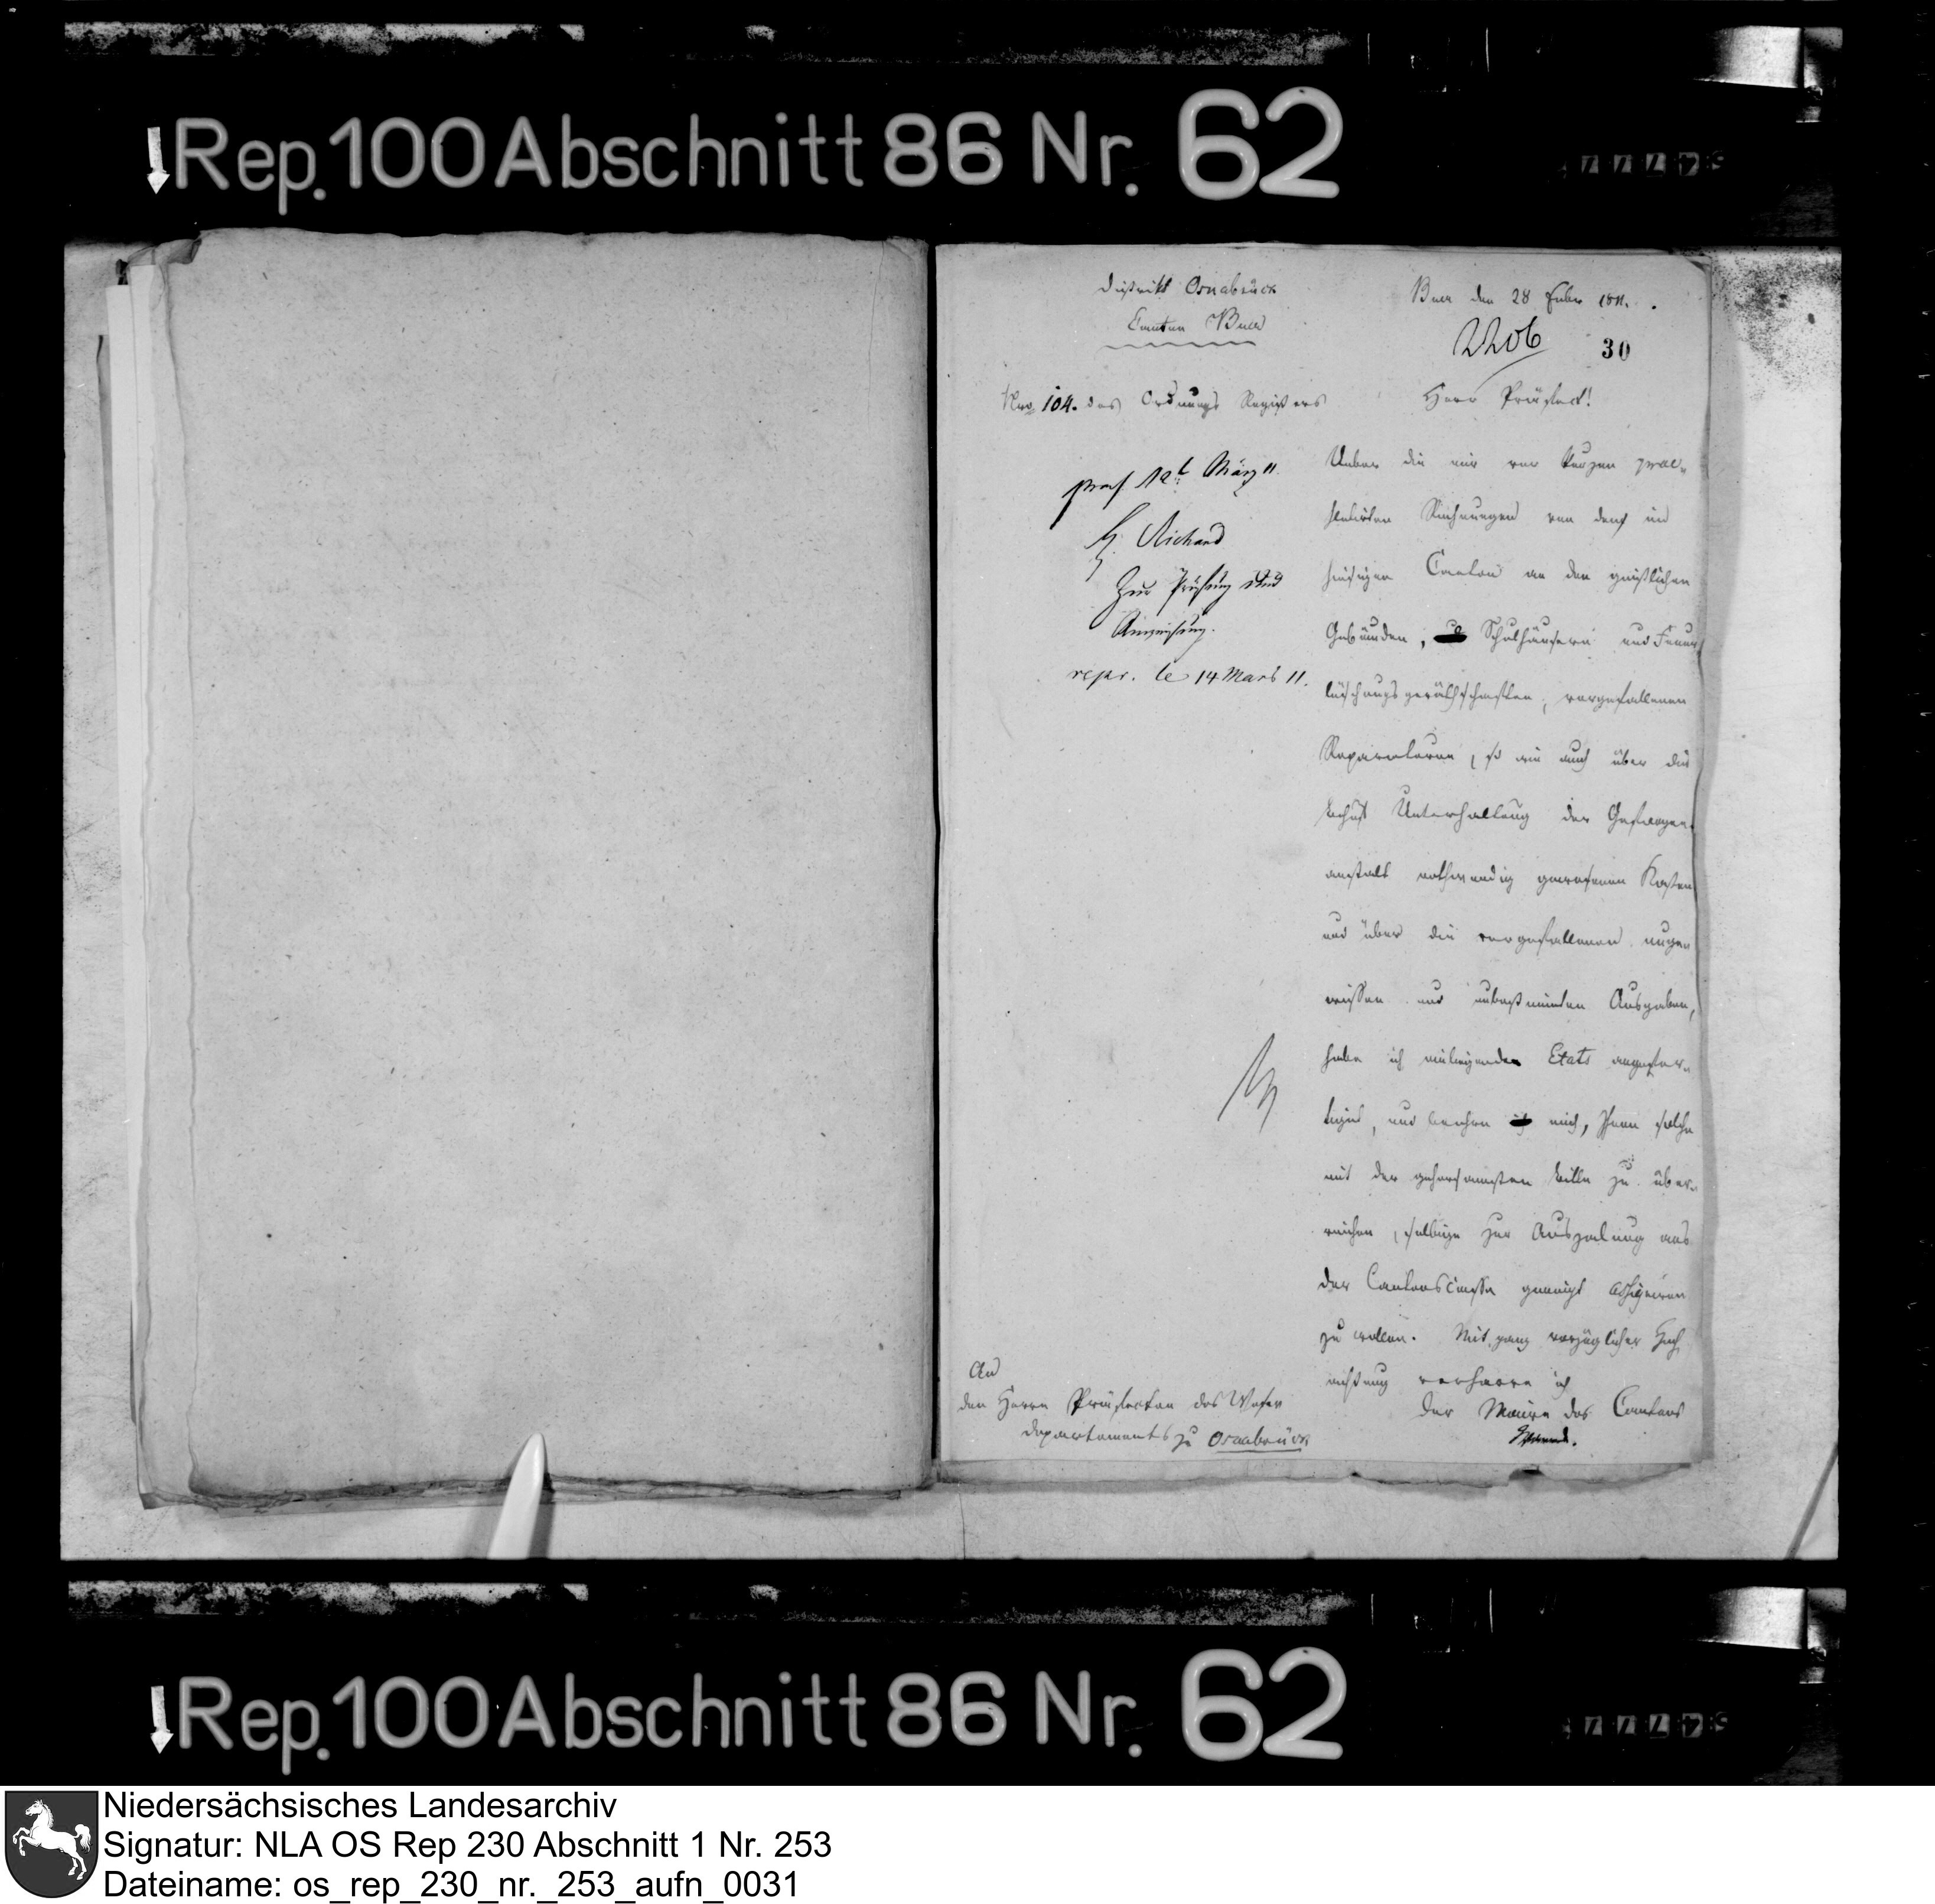 Rep. 100 Abschnitt 86 Nr. 62
District Osnabrück
Canton Buer
Buer den 28 Febr 1811.
2206
30
Nro 104. des Ordnungs Registers
Herr Präfect!
praes. 12t März 11
H. Richard
Zur Prüfung und
Anweisung.
repr. le 14 Mars 11.
Ueber die mir vor kurzem prae-
sentirten Rechnungen von denen im
hiesigen Canton an den geistlichen
Gebäuden, Schulhäusern und Feuer
löschungsgeräthschaften, vorgefallenen
Reparaturen, so wie auch über die
behuf Unterhaltung der Gefangen-
anstalt nothwendig gewesenen Kosten
und über die vorgefallenen ungen
wissen und unbestimmten Ausgaben,
habe ich einliegende Etats angefer-
tiget, und beehre mich, Ihnen solche
mit der gehorsamsten bitte zu über-
reichen, selbige zur Auszalung aus
der Cantonscasse geneigt assigniren
zu wollen. Mit ganz vorzüglicher Hoch
achtung verharre ich
Der Maire des Cantons
An
den Herrn Präfecten des Weser
Departements zu Osnabrück
Rep. 100 Abschnitt 86 Nr. 62
Niedersächsisches Landesarchiv
Signatur: NLA OS Rep 230 Abschnitt 1 Nr. 253
Dateiname: os_rep_230_nr._253_aufn_0031